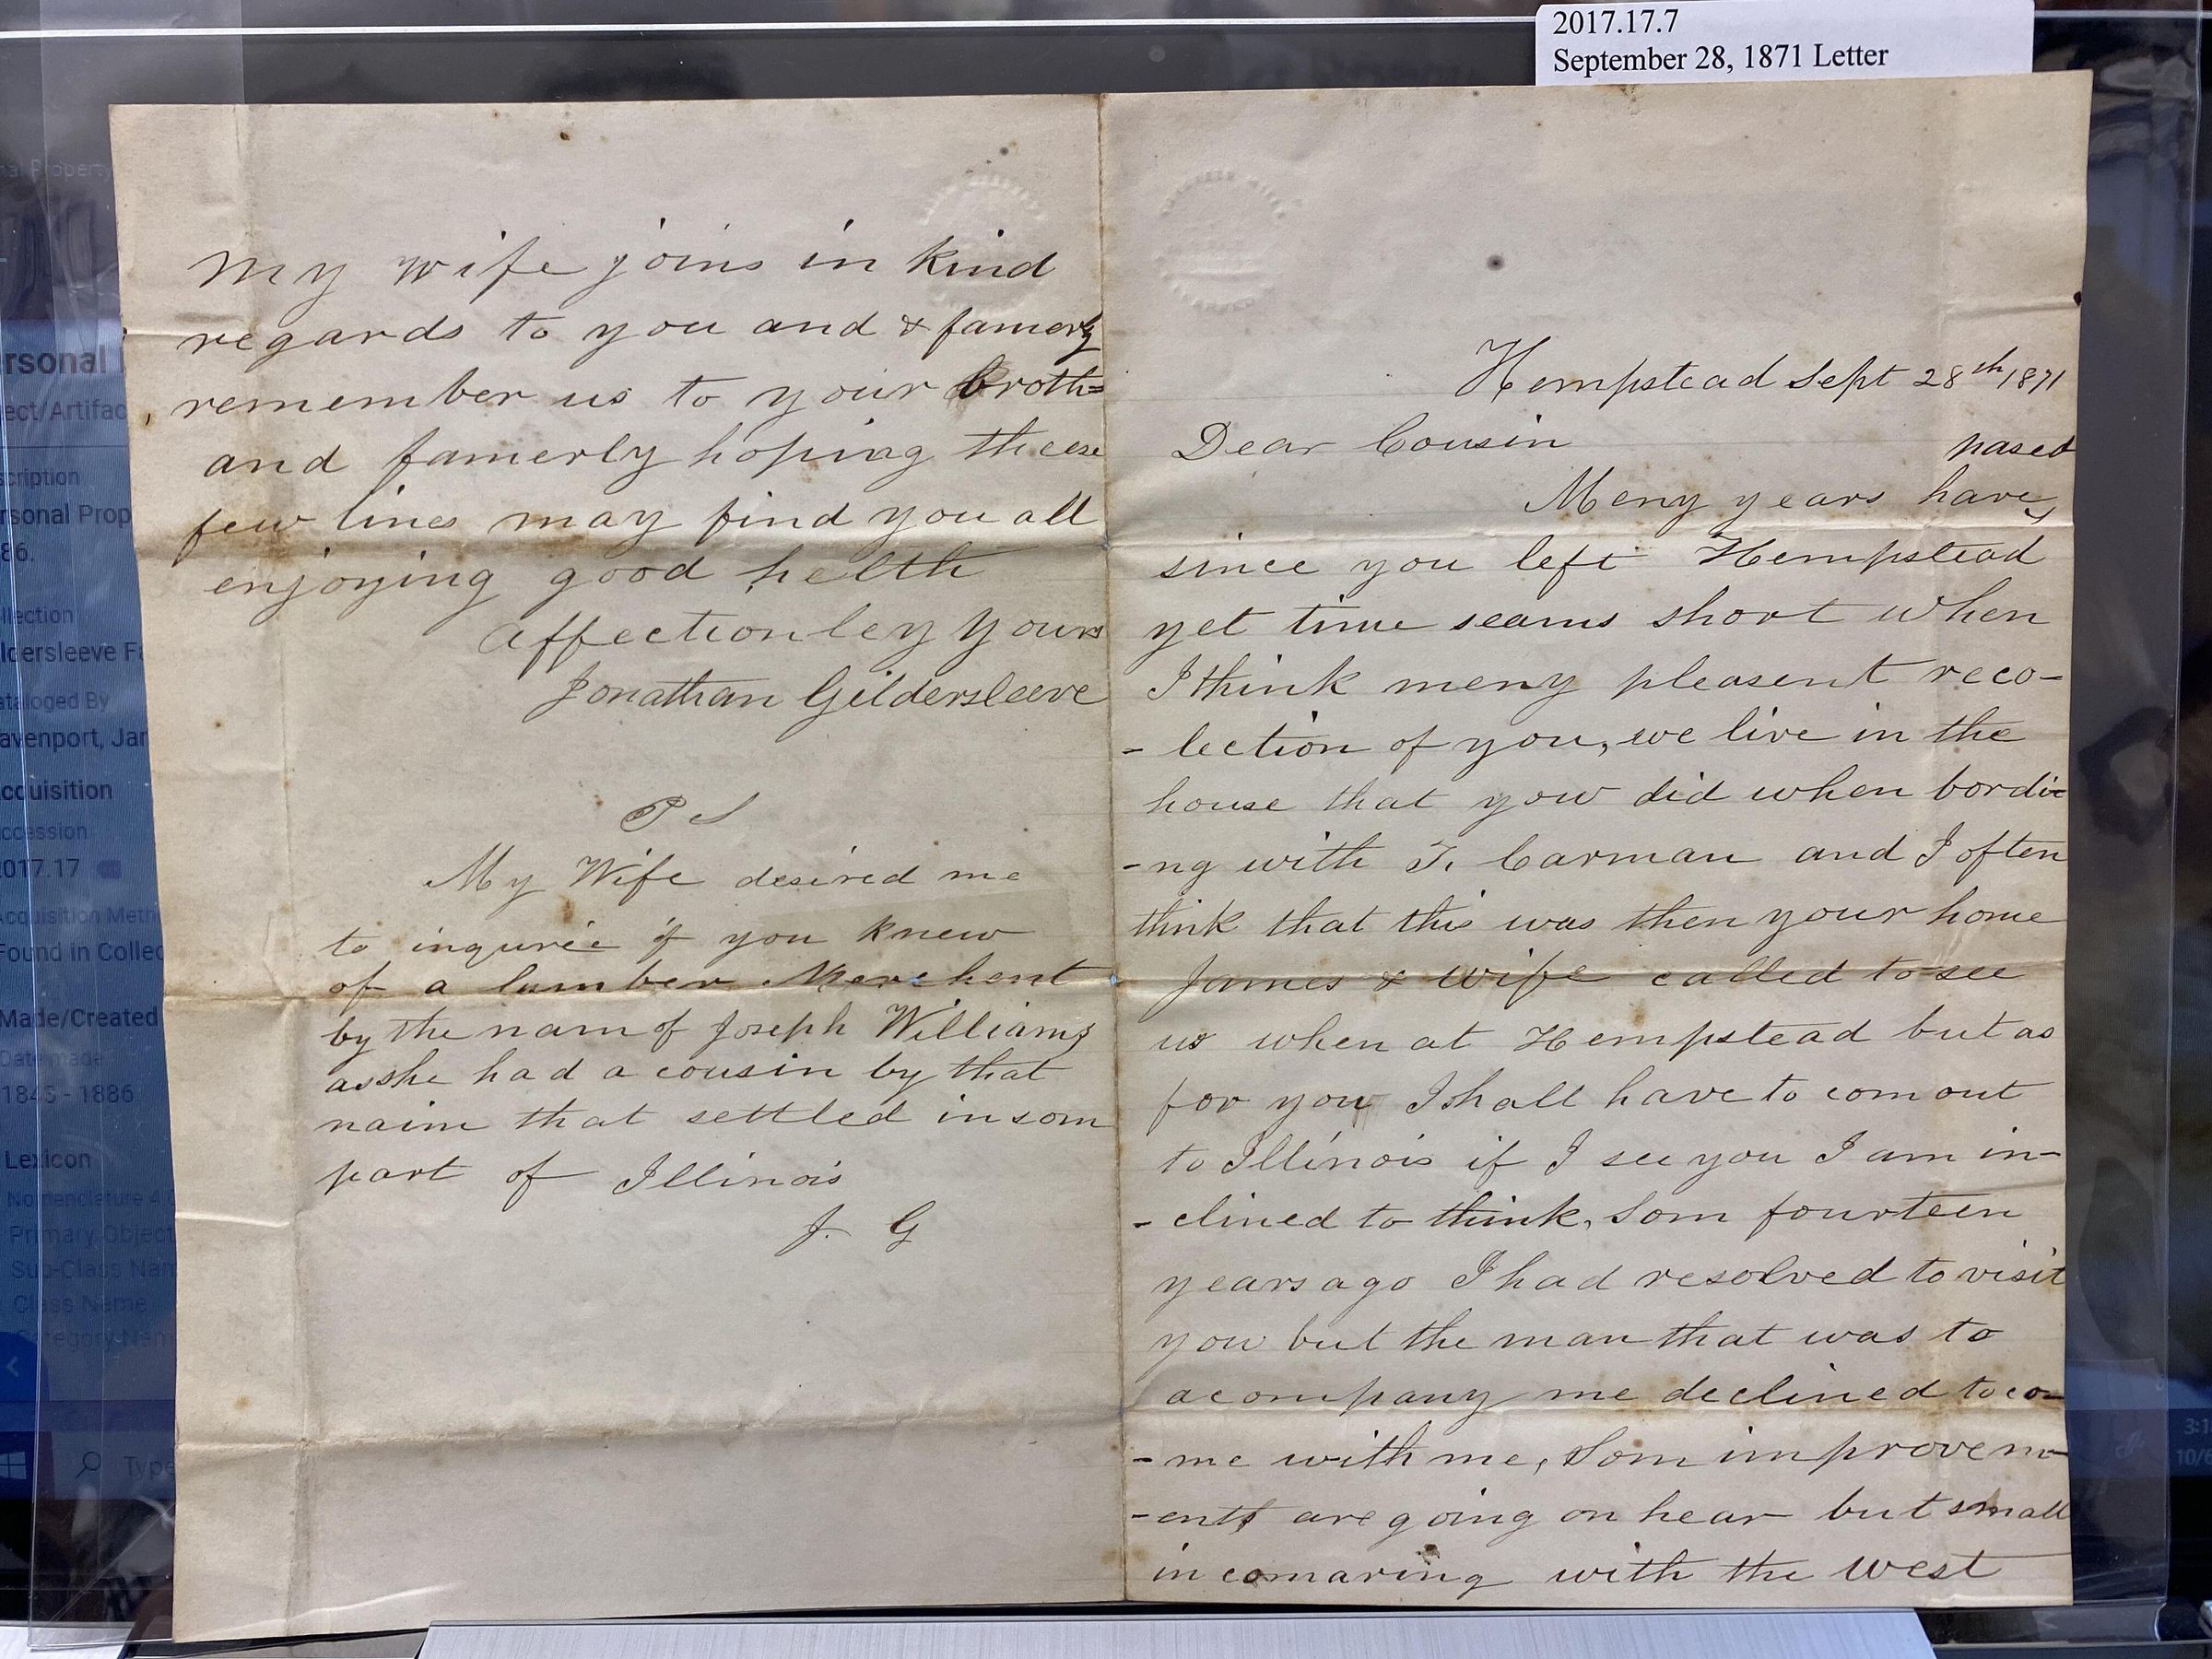 2017.17.7
September 28, 1871 Letter
My wife joins in kind
regards to you and & famerly
remember us to your broth=
and famerly hoping theese
few lines may find you all
enjoying good helth
affectionley yours
Jonathan Gildersleeve
P S
My Wife desired me
to inqurie if you knew
of a lumber Merchent
by the nam of Joseph Williams
as she had a cousin by that
naim that settled in som
part of Illinois
J. G
Hempstead Sept 28th 1871
Dear Cousin
pased
Meny years have
since you left Hempstead
yet time seams short when
I think meny pleasent reco-
- lection of you, we live in the
house that you did when bordi-
-ng with T. Carman and I often
think that this was then your home
James & wife called to see
us when at Hempstead but as
for you I shall have to com out
to Illinois if I see you I am in-
- clined to think, Som fourteen
years ago I had resolved to visit
you but the man that was to
acompany me declined to co-
- me with me, Som improvem-
-ents are going on hear but small
in comaring with the west
ersonal
ect/Artifac
scription
rsonal Prop
86.
llection
ldersleeve Fa
ataloged By
avenport, Jan
cquisition
ccession
2017.17
Acquisition Meth
Found in Collec
Made/Created
Date made
1845 - 1886
Lexicon
Nomenclature 4
Primary Object
Sub-Class Nam
Class Name
Category Nam
Type
3:1
10/6